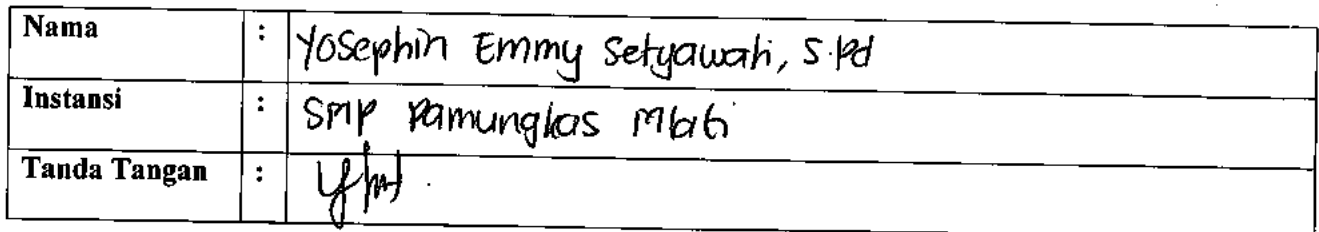 Nama : Yosephin Emmy Setyawati, S.Pd
Instansi : SMP Pamungkas Mlati
Tanda Tangan :